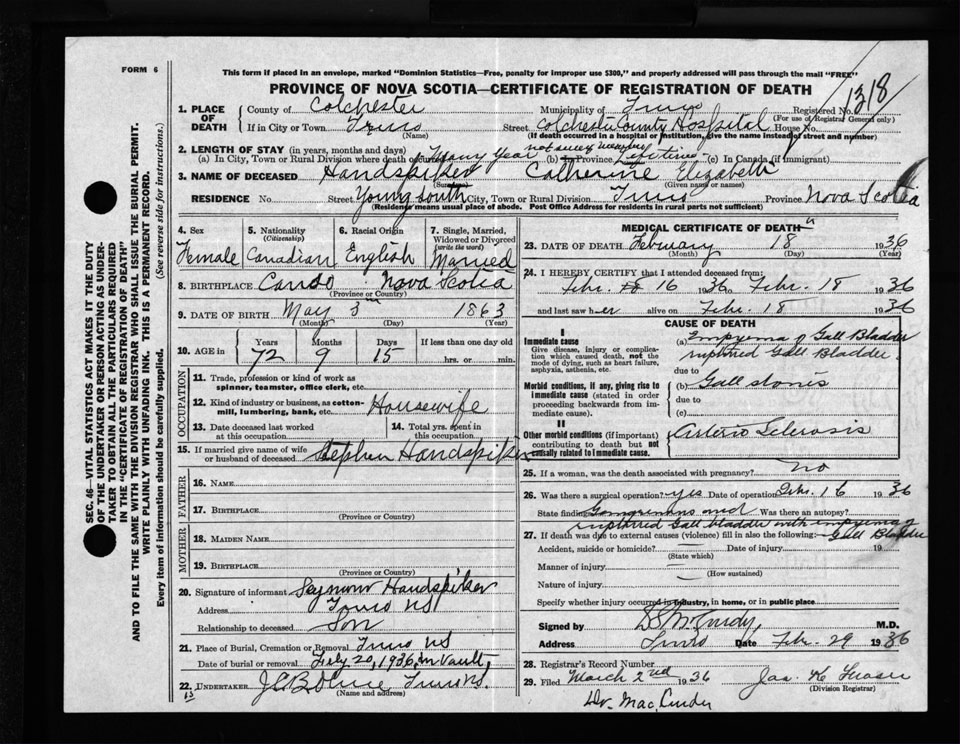 FORM 6
This form if placed in an envelope, marked "Dominion Statistics—Free, penalty for improper use $300," and properly addressed will pass through the mail "FREE"
PROVINCE OF NOVA SCOTIA—CERTIFICATE OF REGISTRATION OF DEATH
1318
1. PLACE OF DEATH
County of Colchester Municipality of Truro Registered No.
(For use of Registrar General only)
If in City or Town Truro Street Colchester County Hospital House No.
(Name) (If death occurred in a hospital or institution, give the name instead of street and number)
2. LENGTH OF STAY (in years, months and days)
(a) In City, Town or Rural Division where death occurred Many Years (b) In Province Lifetime (c) In Canada (if immigrant)
3. NAME OF DECEASED Handspiker Catherine Elizabeth
(Surname) (Given name or names)
RESIDENCE No. Street Young South City, Town or Rural Division Truro Province Nova Scotia
(Residence means usual place of abode. Post Office Address for residents in rural parts not sufficient)
4. Sex Female
5. Nationality (Citizenship) Canadian
6. Racial Origin English
7. Single, Married, Widowed or Divorced (write the word) Married
8. BIRTHPLACE Canso Nova Scotia
(Province or Country)
9. DATE OF BIRTH May 3 1863
(Month) (Day) (Year)
10. AGE in Years Months Days If less than one day old
72 9 15 hrs. or min.
OCCUPATION
11. Trade, profession or kind of work as spinner, teamster, office clerk, etc.
12. Kind of industry or business, as cotton-mill, lumbering, bank, etc. Housewife
13. Date deceased last worked at this occupation
14. Total yrs. spent in this occupation
15. If married give name of wife or husband of deceased Stephen Handspiker
FATHER
16. NAME
17. BIRTHPLACE
(Province or Country)
MOTHER
18. MAIDEN NAME
19. BIRTHPLACE
(Province or Country)
20. Signature of informant Seymour Handspiker
Address Truro NS
Relationship to deceased Son
21. Place of Burial, Cremation or Removal Truro NS
Date of burial or removal Feby 20, 1936, in Vault,
22. UNDERTAKER Truro NS.
(Name and address)
13
MEDICAL CERTIFICATE OF DEATH
23. DATE OF DEATH February 18 1936
(Month) (Day) (Year)
24. I HEREBY CERTIFY that I attended deceased from:
Febr. 16 1936 to Febr. 18 1936
and last saw her alive on Febr. 18 1936
CAUSE OF DEATH
I
Immediate cause
Give disease, injury or complication which caused death, not the mode of dying, such as heart failure, asphyxia, asthenia, etc.
(a) Empyema of Gall Bladder
ruptured Gall Bladder.
due to
Morbid conditions, if any, giving rise to immediate cause (stated in order proceeding backwards from immediate cause).
(b) Gall stones
due to
(c)
II
Other morbid conditions (if important) contributing to death but not causally related to immediate cause.
Arterio Sclerosis
25. If a woman, was the death associated with pregnancy? no
26. Was there a surgical operation? yes Date of operation Febr. 16 1936
State findings Gangrenous and Was there an autopsy?
ruptured Gall bladder with empyema of Gall Bladder
27. If death was due to external causes (violence) fill in also the following:
Accident, suicide or homicide? Date of injury 19
(State which)
Manner of injury
(How sustained)
Nature of injury
Specify whether injury occurred in industry, in home, or in public place
Signed by D S McCurdy, M.D.
Address Truro Date Feb. 29 1936
28. Registrar's Record Number
29. Filed March 2nd 1936 Jas. K Fraser
(Division Registrar)
Dr. MacCurdy
SEC. 46—VITAL STATISTICS ACT MAKES IT THE DUTY
OF THE UNDERTAKER OR PERSON ACTING AS UNDERTAKER TO OBTAIN ALL THE PARTICULARS REQUIRED
IN THE "CERTIFICATE OF REGISTRATION OF DEATH"
AND TO FILE THE SAME WITH THE DIVISION REGISTRAR WHO SHALL ISSUE THE BURIAL PERMIT.
WRITE PLAINLY WITH UNFADING INK. THIS IS A PERMANENT RECORD.
Every item of information should be carefully supplied. (See reverse side for instructions.)